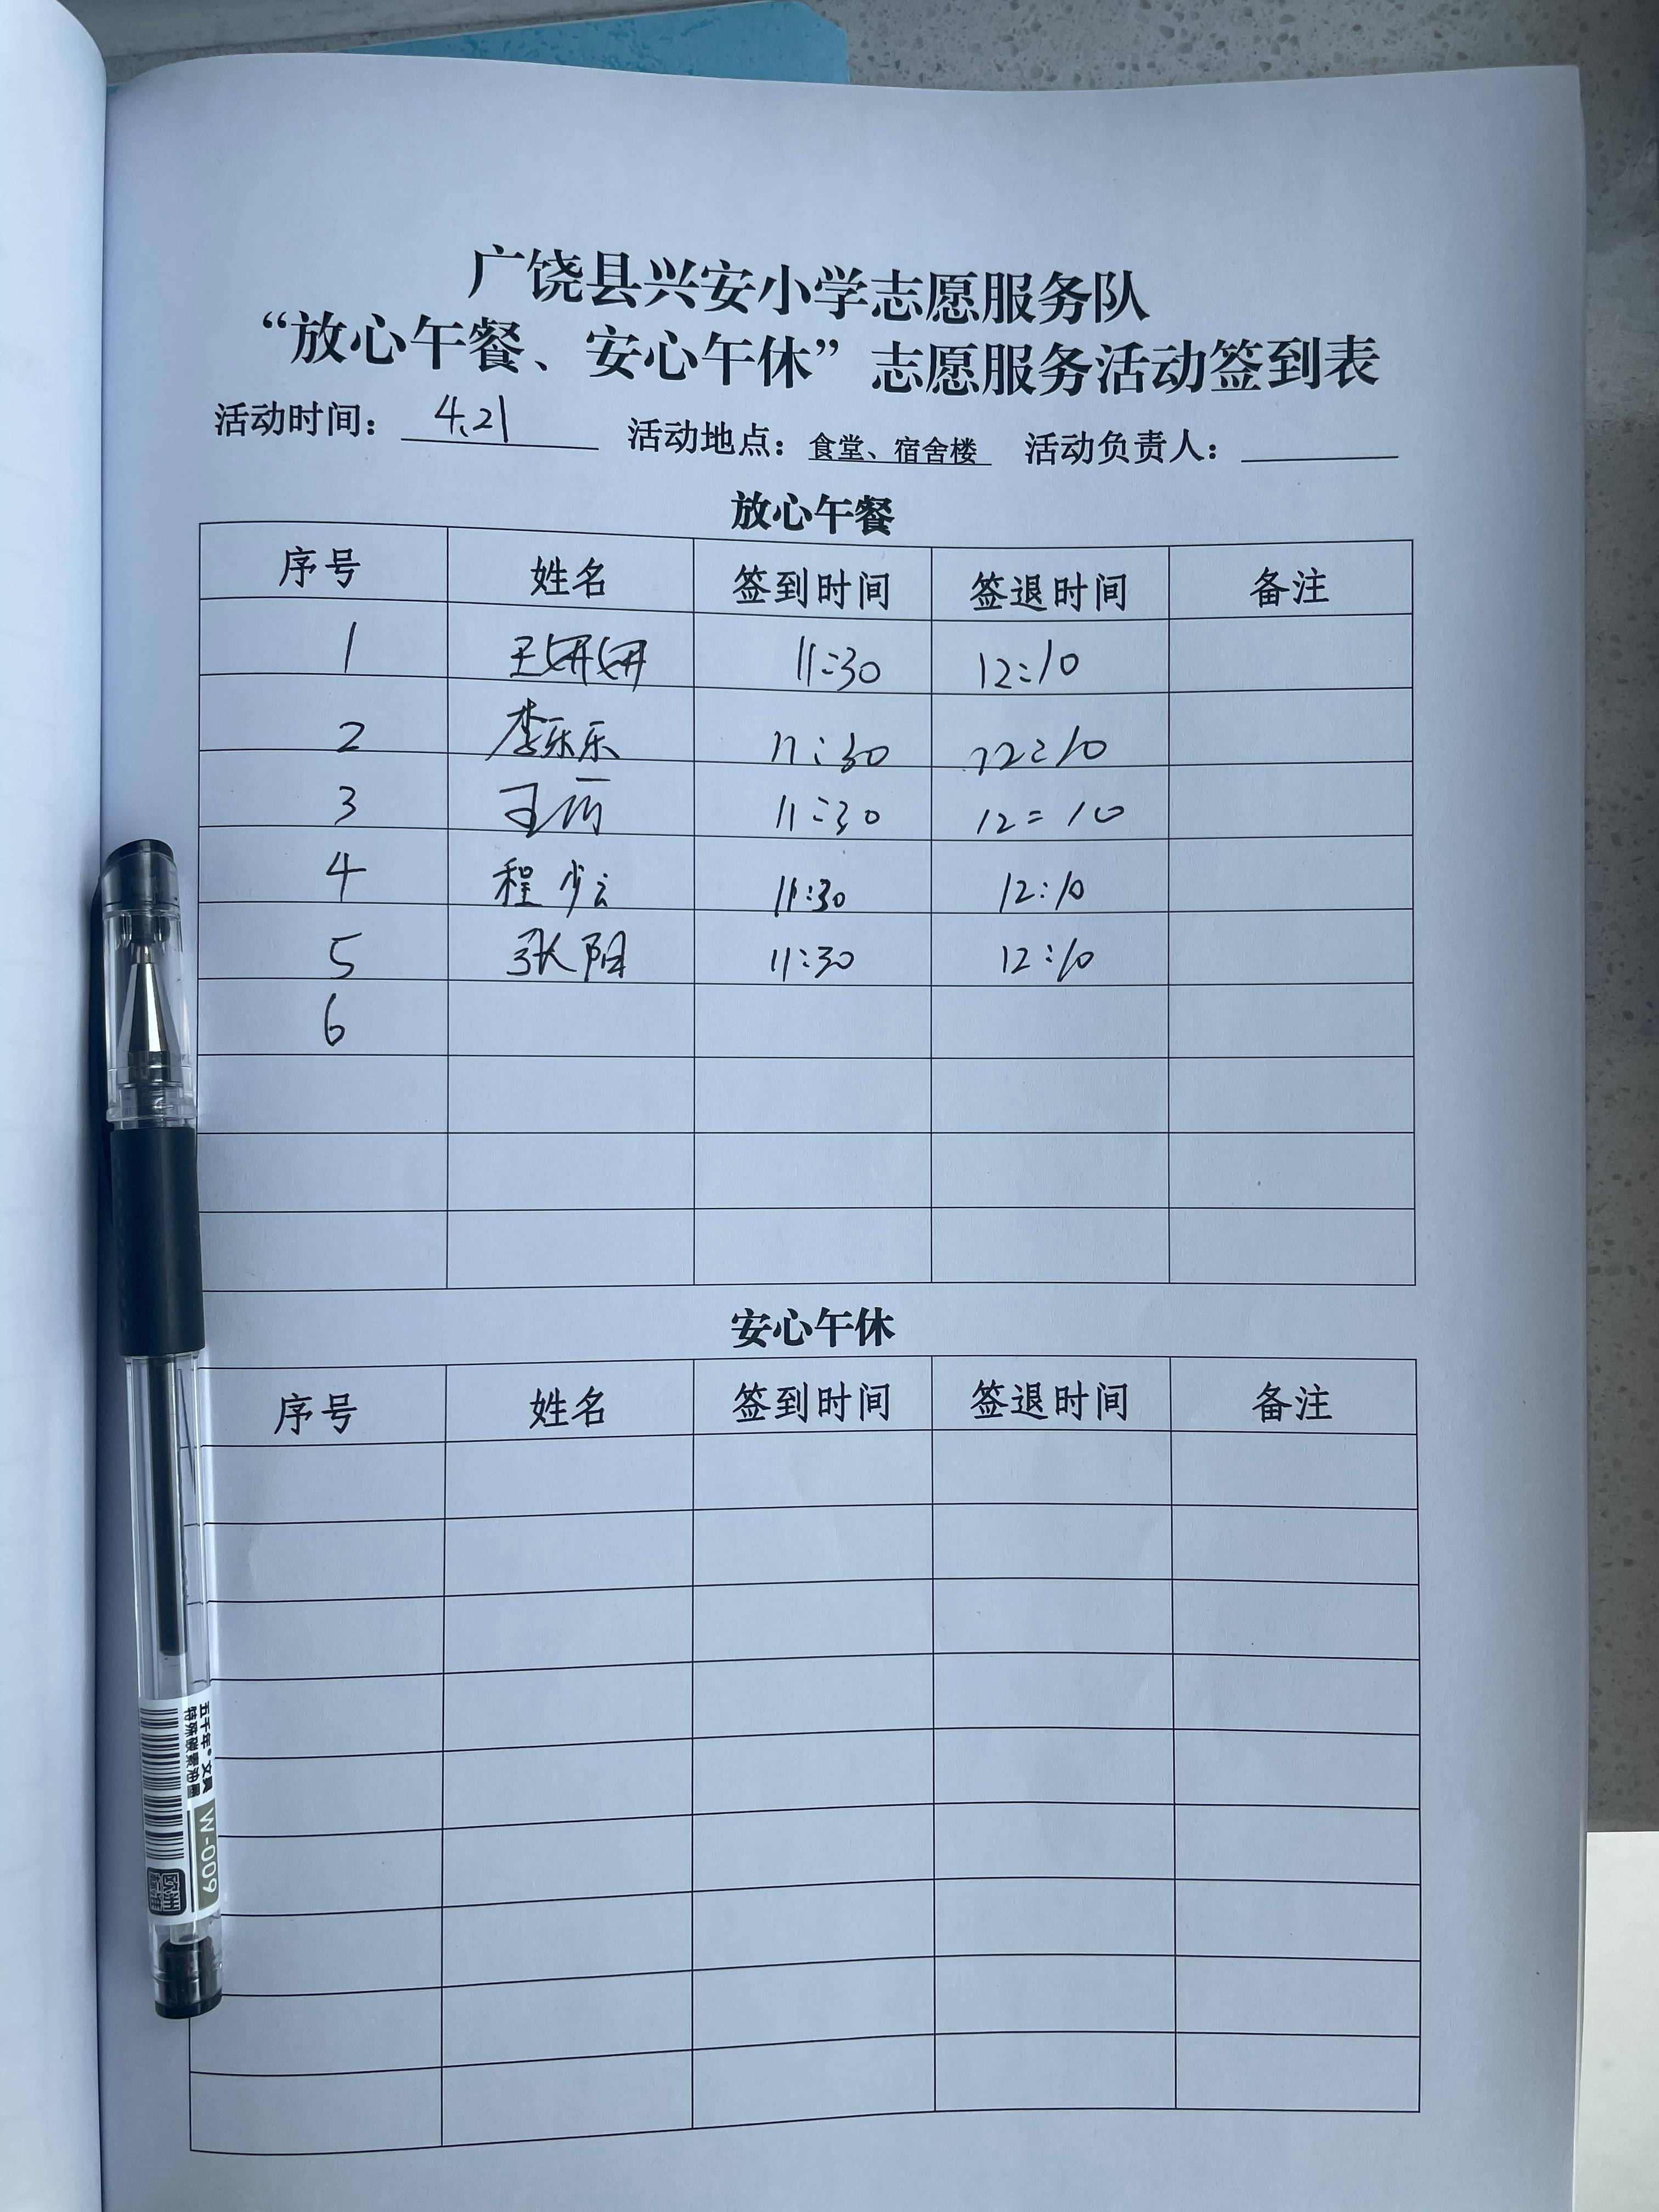 广饶县兴安小学志愿服务队
“放心午餐、安心午休”志愿服务活动签到表
活动时间： 4.21 活动地点：食堂、宿舍楼 活动负责人：
放心午餐
序号 姓名 签到时间 签退时间 备注
1 王妍妍 11:30 12:10
2 李乐乐 11:30 12:10
3 王 11:30 12:10
4 程少云 11:30 12:10
5 张阳 11:30 12:10
6
安心午休
序号 姓名 签到时间 签退时间 备注
五千年®文具
W-009